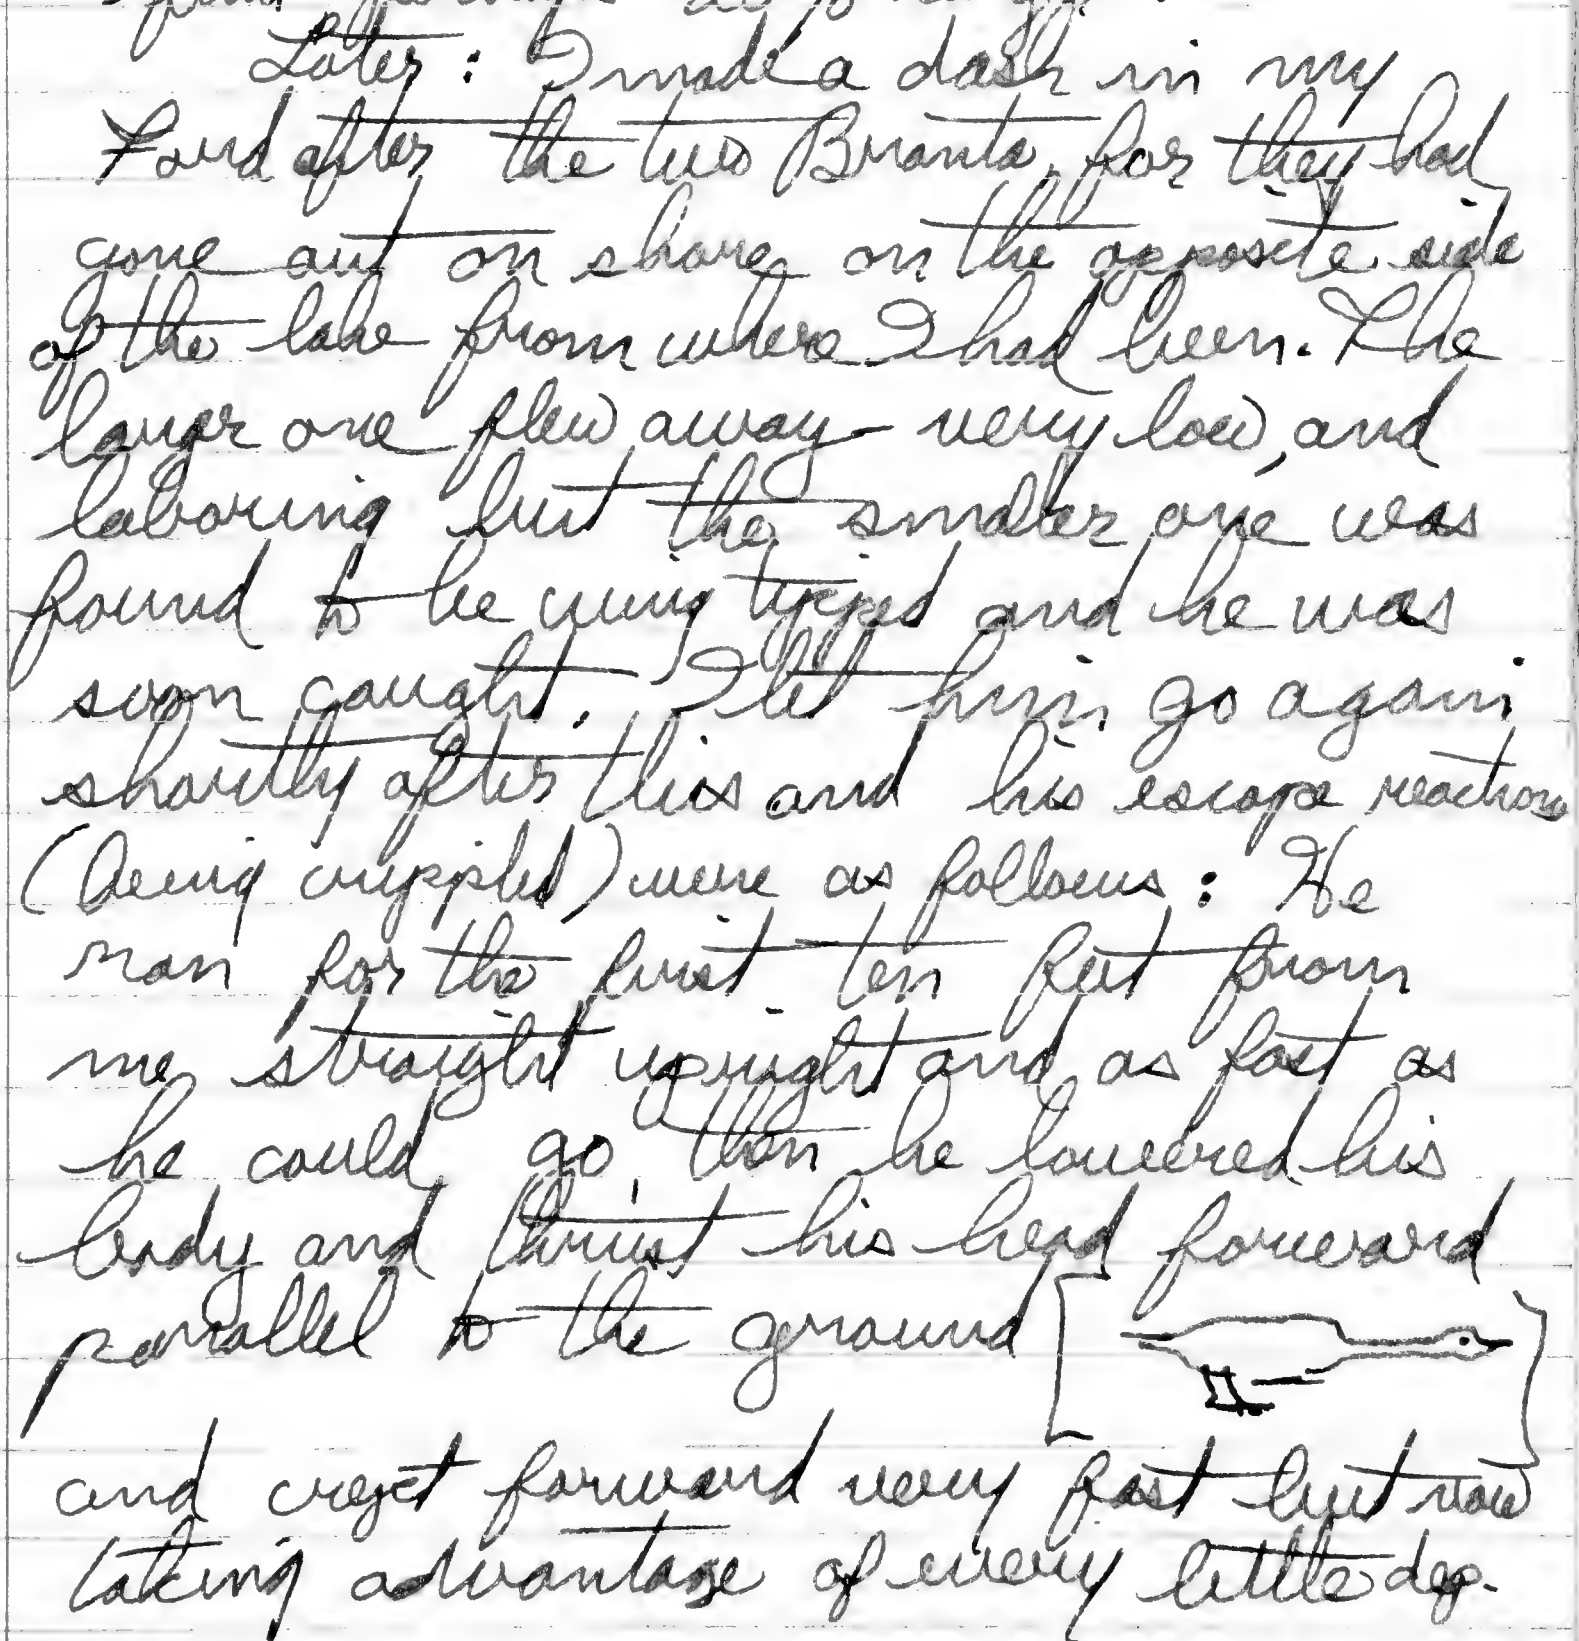 Later: I made a dash in my
Ford after the two Branta, for they had
gone out on shore on the opposite side
of the lake from where I had been. The
larger one flew away very low, and
laboring but the smaller one was
found to be wing tipped and he was
soon caught. I let him go again
shortly after this and his escape reactions
(being crippled) were as follows: He
ran for the first ten feet from
me straight upright and as fast as
he could go, then he lowered his
body and thrust his head forward
parallel to the ground
and crept forward very fast but now
taking advantage of every little dep.